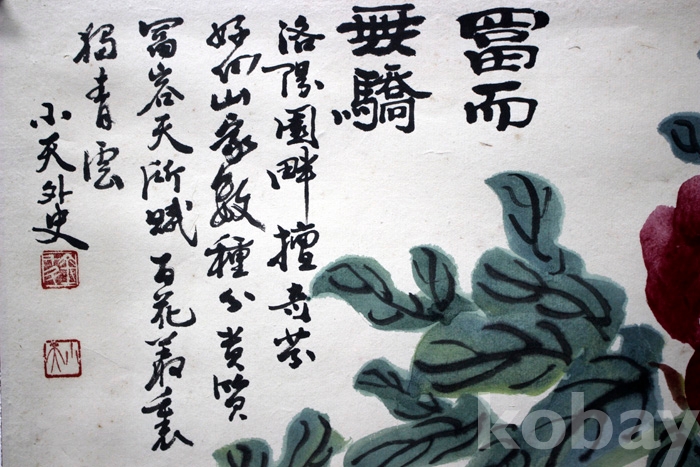 富而
無驕
洛陽園畔擅奇芬
好向山家數種分貴質
富容天所賦百花叢裏
獨青雲
小天外史
kobay